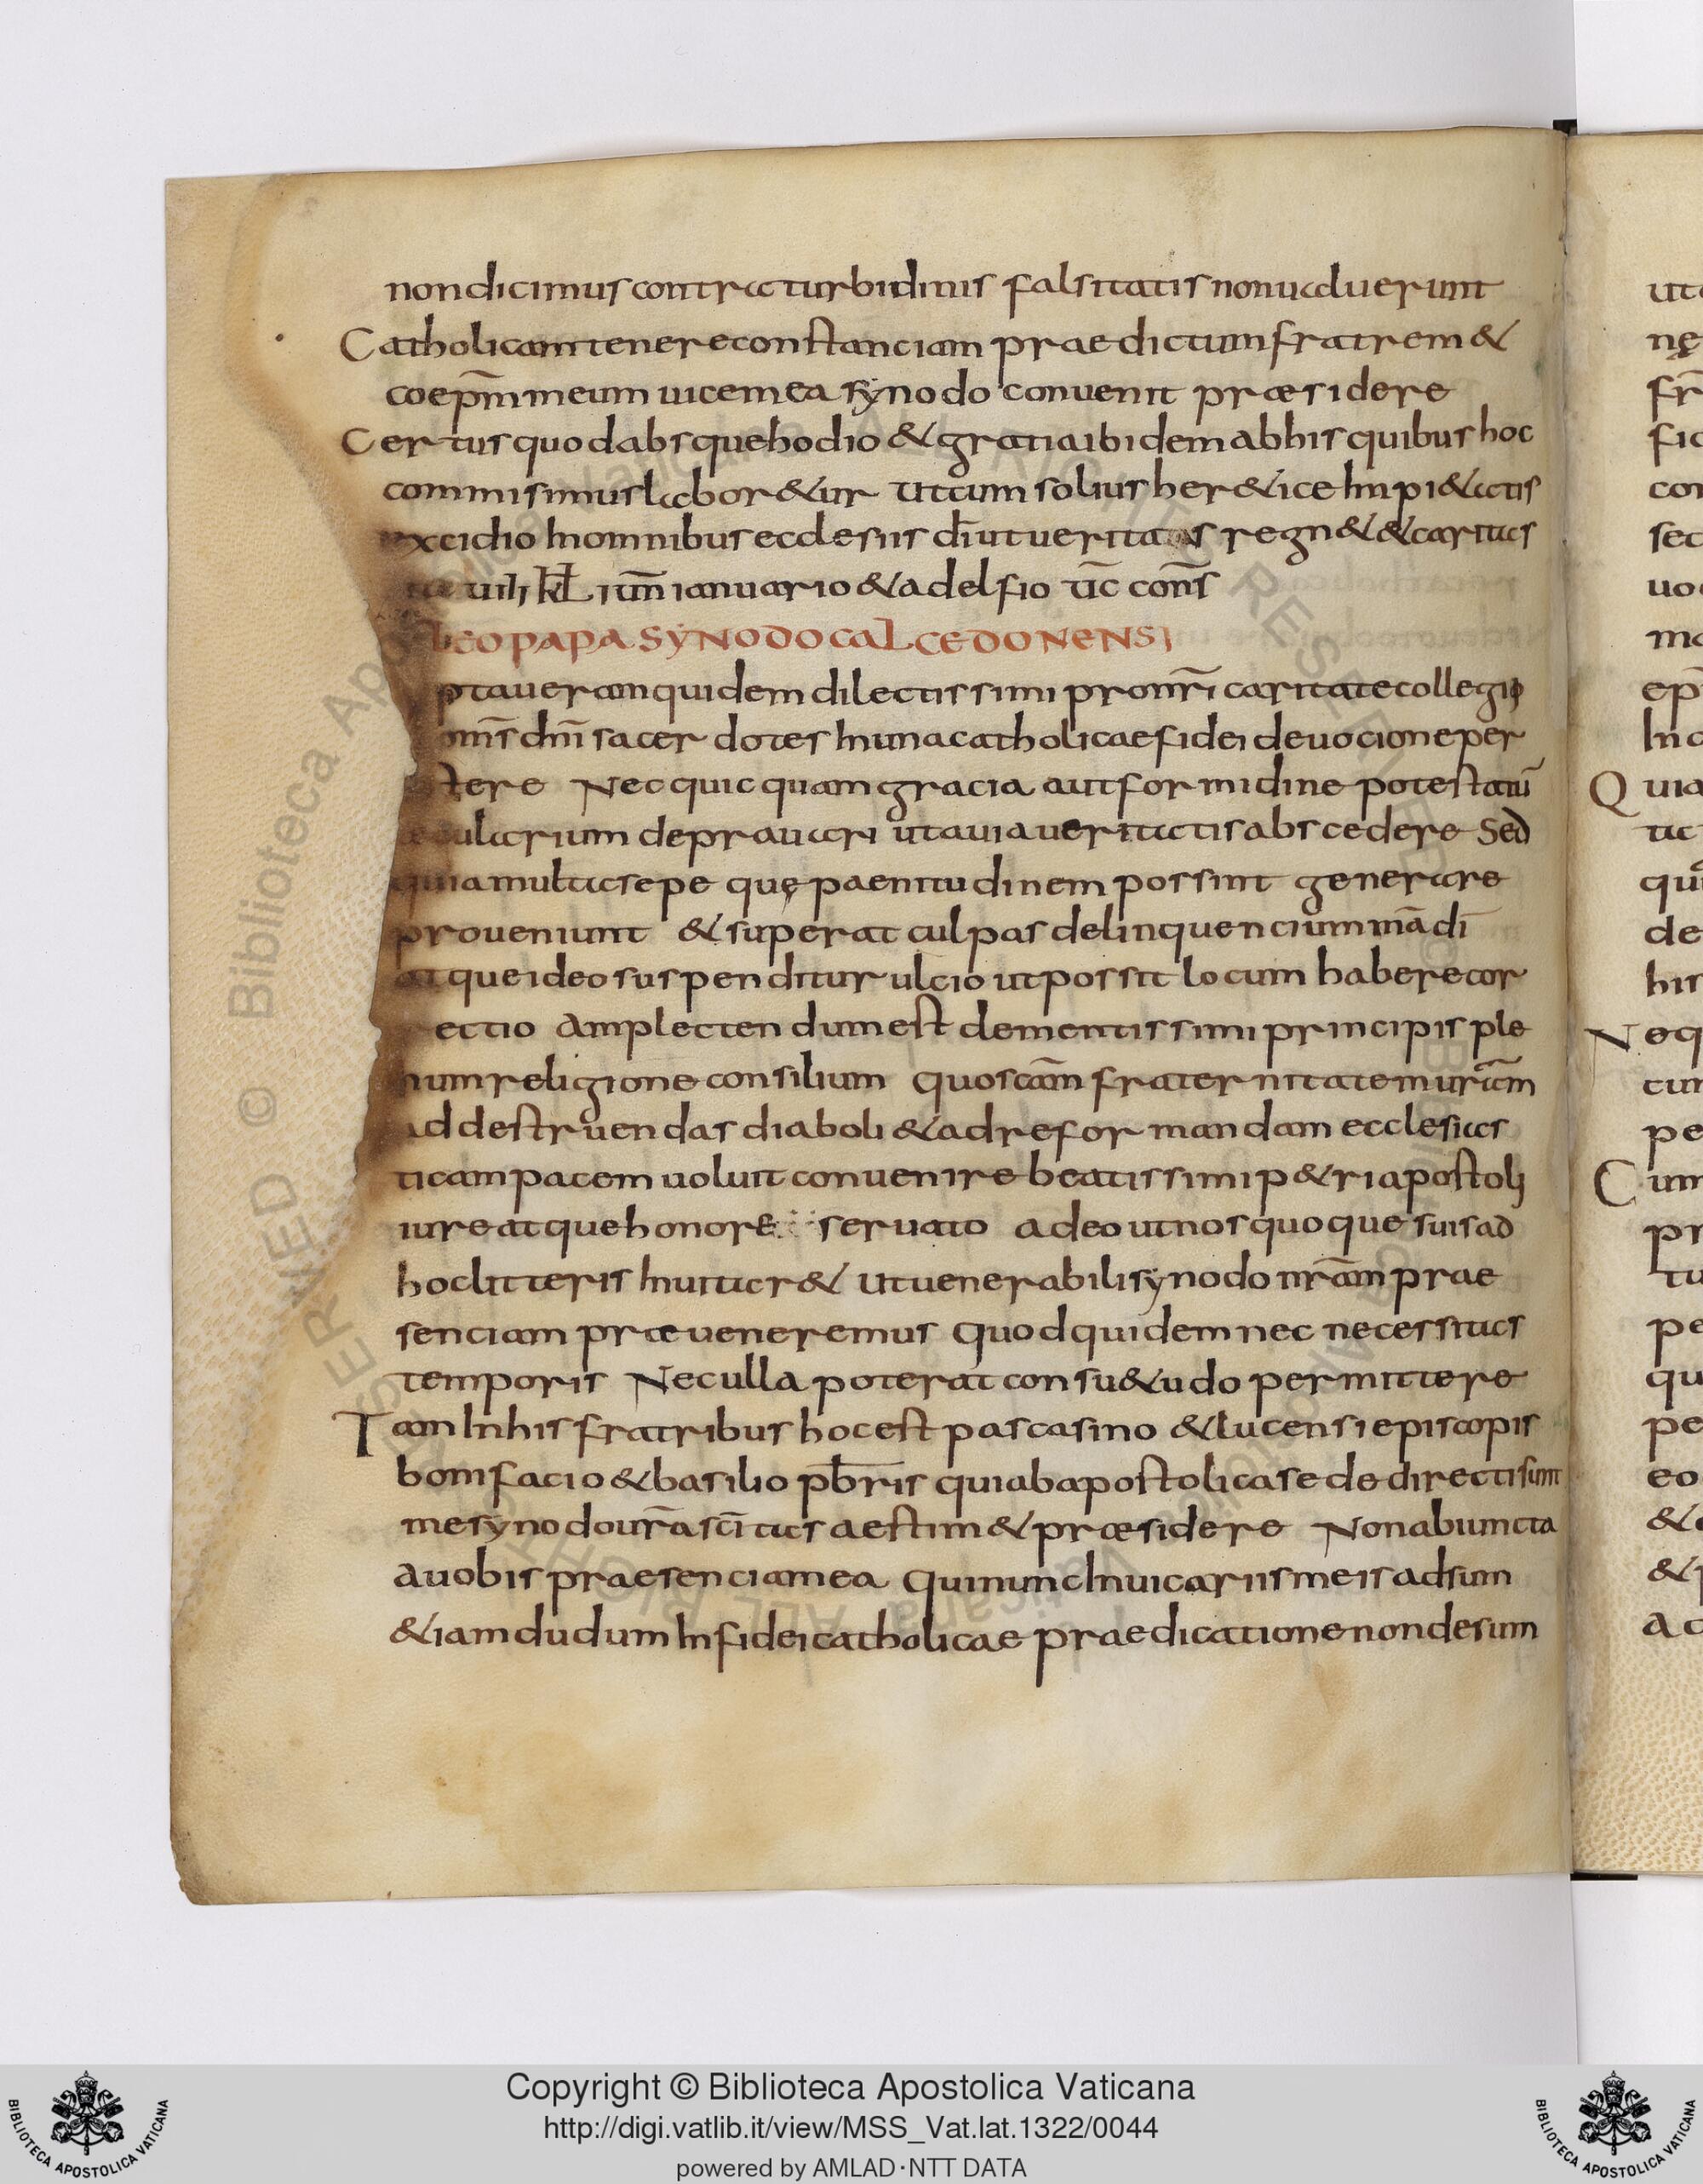 non dicimus contra turbidinis falsitatis non uaduerunt
Catholicam tenere constanciam praedictum fratrem &
coep̄m meum uice mea synodo conuenit præsidere
Certus quod absque hodio & gratia ibidem ab his quibus hoc
commisimus labor&ur Ut cum solius her&ice Inpi&atis
excidio In omnibus ecclesiis d̄i ut ueritatis regn& & caritas
uiii kł iun̄ ianuario & adelfio uc̄ cons̄
LEO PAPA SYNODO CALCEDONENSI
ptaueram quidem dilectissimi pro nr̄i caritate collegio
omns̄ dn̄i sacerdotes In una catholicae fidei deuocione per
stere Nec quicquam gracia aut formidine potestatū
ecularium deprauari ut a uia ueritatis abscedere Sed
quia multa sepe quę paenitudinem possint generare
proueniunt & superat culpas delinquencium mīa dī
atque ideo suspenditur ulcio ut possit locum habere cor
rectio Amplectendum est clementissimi principis ple
num religione consilium quo scām fraternitatem ur̄am
ad destruendas diaboli & ad reformandam ecclesias
ticam pacem uoluit conuenire beatissimi p&ri apostoli
iure atque honore seruato adeo ut nos quoque suis ad
hoc litteris Inuitar& Ut uenerabili synodo nr̄am prae
senciam præueneremus Quod quidem nec necessitas
temporis Nec ulla poterat consu&udo permittere
Tam In his fratribus hoc est pascasino & lucensi episcopis
bonifacio & basilio pb̄ris qui ab apostolica sede directi sunt
me synodo ur̄a scītas aestim& præsidere Non abiuncta
a uobis praesencia mea Qui nunc In uicariis meis adsum
& iam dudum In fidei catholicae praedicatione non desum
Copyright © Biblioteca Apostolica Vaticana
http://digi.vatlib.it/view/MSS_Vat.lat.1322/0044
powered by AMLAD·NTT DATA